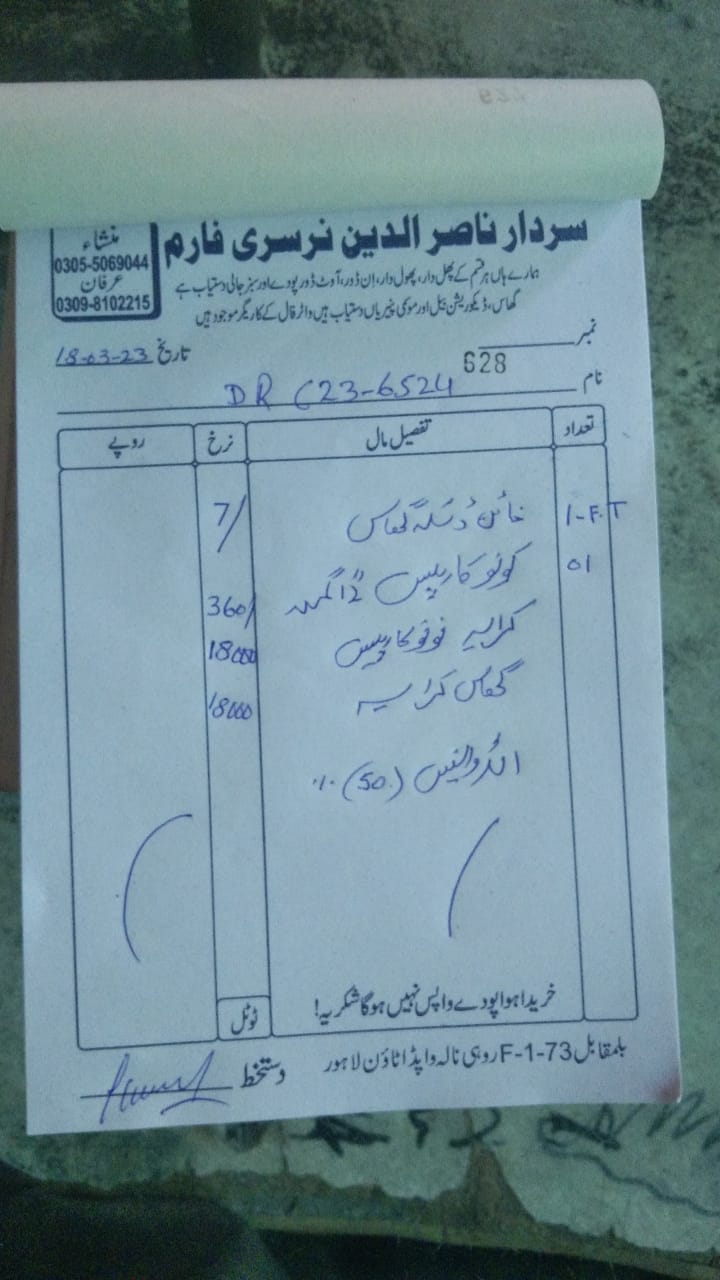 سردار ناصر الدین نرسری فارم
منشاء
0305-5069044
عرفان
0309-8102215
ہمارے ہاں ہر قسم کے پھل دار، پھول دار، اِن ڈور، آوٹ ڈور پودے اور سبز جالی دستیاب ہے
گھاس، ڈیکوریشن بیل اور موسمی پنیریاں دستیاب ہیں واٹر فال کے کاریگر موجود ہیں
نمبر 628
تاریخ 18-03-23
نام DR C23-6524
تعداد تفصیل مال نرخ روپے
1-F.T فائن ڈھاکہ گھاس 7/
01 کونو کارپس 360/
کرایہ کونو کارپس 18000
گھاس کرایہ 18000
ایڈوانس (50)
خریدا ہوا پودے واپس نہیں ہوگا شکریہ!
ٹوٹل
بلمقابل F-1-73 روہی نالہ واپڈا ٹاؤن لاہور
دستخط